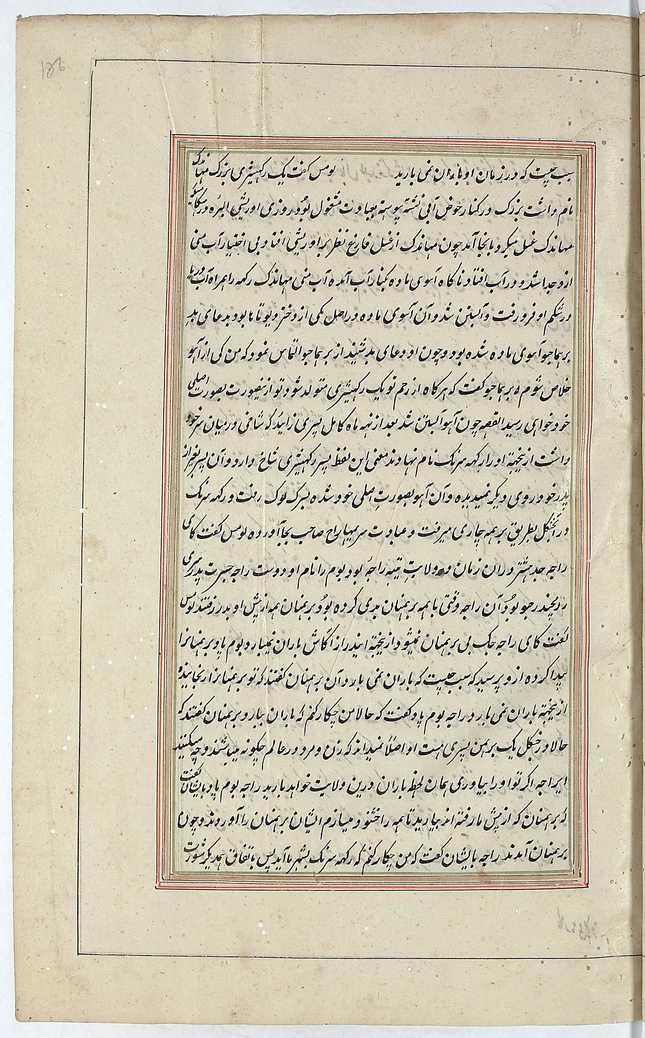 سبب چیست که در زمان او باران نمی بارید لومس گفت یک رکهیشری بزرگ مهاندک
نام داشت بزرگ در کنار حوض آبی نشسته پیوسته بعبادت مشغول بود روزی اوریشی البره در
مهاندک غسل میکرد بانجا آمد چون مهاندک از غسل فارغ نظر بر اوریشی افتاد بی اختیار آب منی
ازو جدا شد و در آب افتاد ناگاه آهوی ماده بکنار آب آمده آب منی مهاندک رکهه را همراه آب
در شکم او فرو رفت و آبستن شد و آن آهوی ماده در اصل یکی از دختر دیوتاها بود بدعای بد
برهما جیو آهوی ماده شده بود و چون او دعای بد شنید از برهما جیو التماس نمود که من کی از آهو
خلاص شوم برهما جیو گفت که هرگاه از رحم تو یک رکهیشری متولد شود تو ازینصورت بصورت اصلی
خود خواهی رسید القصه چون آهو آبستن شد بعد از نه ماه کامل پسری زائید که شاخی در میان سر خود
داشت ازینجهة او را رکهه سرنگ نام نهادند معنی این لفظ پسر رکهیشری شاخ دارد و آن پسر بغیر از
پدر خود روی دیگر نمیدیده و آن آهو بصورت اصلی خود شده بسرگ لوک رفت و رکهه سرنگ
در جنگل بطریق برهمه چاری میرفت و عبادت سریمهاراج صاحب بجا آورده لومس گفت که ای
راجه جدهشتر دران زمان در ولایت تیبه راجه بود لوم پاد نام او دوست راجه جسرت پدر سری
رامچندر جیو بود آن راجه وقتی با همه برهمنان بدی کرده بود برهمنان همه از پیش او بدر رفتند لومس
گفت که ای راجه جک بی برهمنان نمیشود ازینجهة ایندر از آکاش باران نمیبارد لوم پاد برهمنانرا
پیدا کرده ازو پرسید که سبب چیست که باران نمی بارد آن برهمنان گفتند که تو برهمنانرا رنجانیده
ازینجهة باران نمی بارد راجه لوم پاد گفت که حالا من چکار کنم که باران ببارد برهمنان گفتند که
حالا در جنگل یک برهمن پسری هست او اصلا نمیداند که زن و مرد در عالم چگونه میباشند و چه میگویند
ای راجه اگر تو او را بیاوری همان لحظه باران درین ولایت خواهد بارید راجه لوم پاد بایشان گفت
که برهمنان که از پیش ما رفته اند بیارید تا همه را خشنود میسازم ایشان برهمنان را آوردند و چون
برهمنان آمدند راجه بایشان گفت که من چکار کنم که رکهه سرنگ بشهر ما آید پس باتفاق همدیگر مشورت